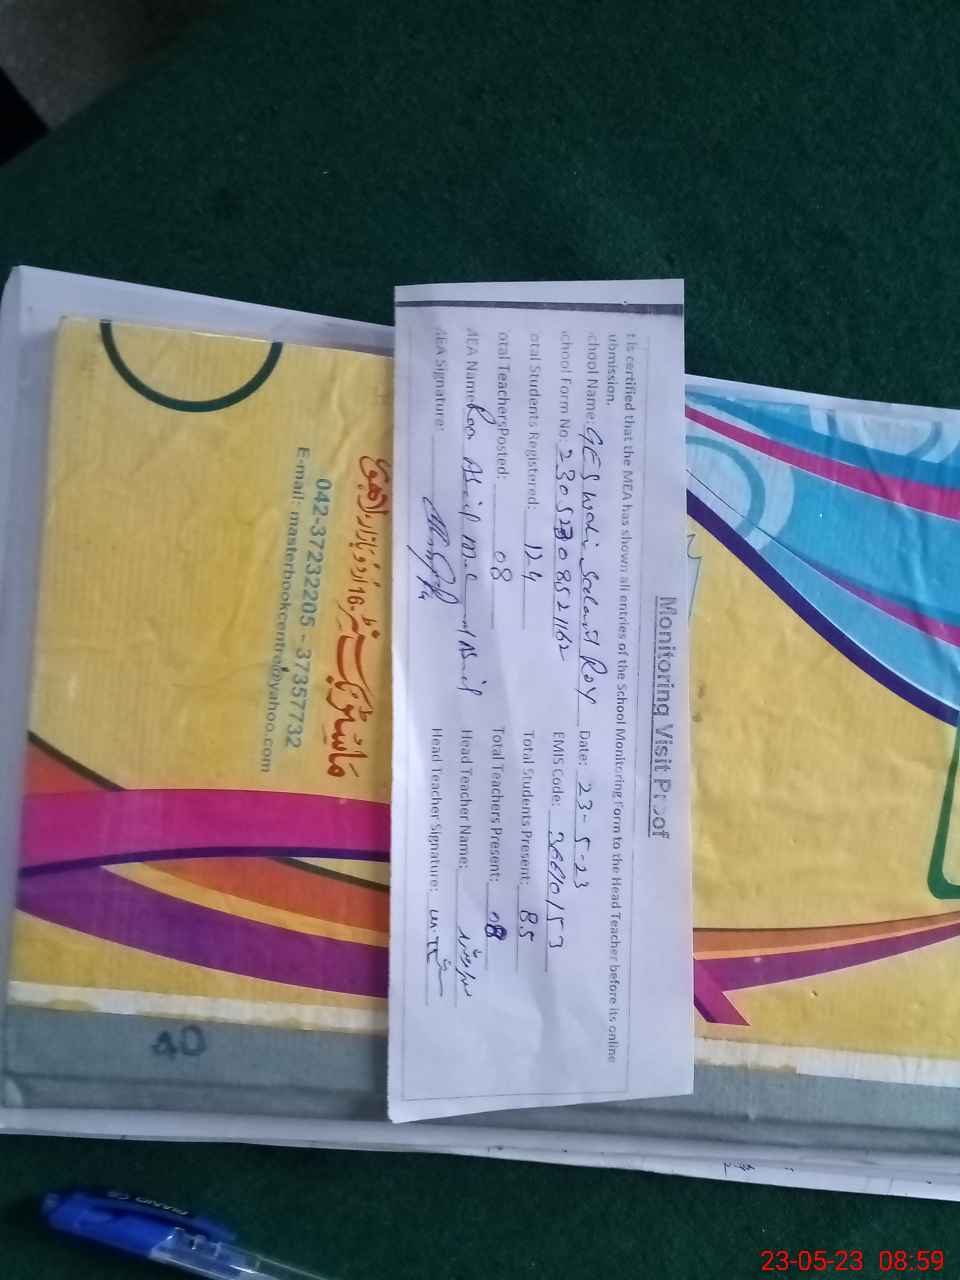 Monitoring Visit Proof
t is certified that the MEA has shown all entries of the School Monitoring Form to the Head Teacher before its online
ubmission.
chool Name: GES Date: 23-5-23
chool Form No: EMIS Code: 36610153
otal Students Registered: 124 Total Students Present: 85
otal TeachersPosted: 08 Total Teachers Present: 08
MEA Name: Head Teacher Name:
MEA Signature: Head Teacher Signature:
ماسٹر بک سنٹر 16۔ اردو بازار، لاہور
042-37232205 - 37357732
E-mail: masterbookcentre@yahoo.com
40
PIANO
23-05-23 08:59